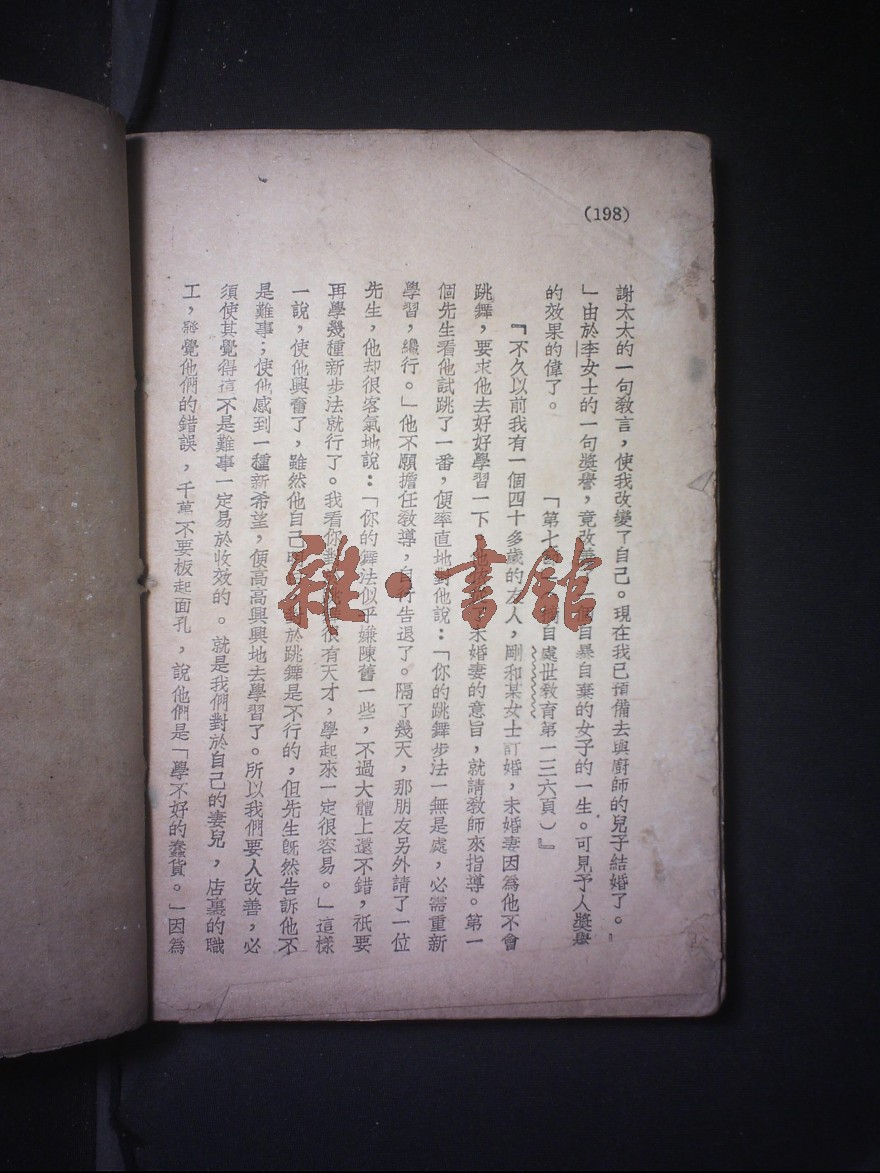 (198)
謝太太的一句敎言，使我改變了自己。現在我已預備去與廚師的兒子結婚了。』
」由於李女士的一句獎譽，竟改 個自暴自棄的女子的一生。可見予人獎譽
的效果的偉了。 「第七 自處世敎育第一三六頁）』
『不久以前我有一個四十多歲的友人，剛和某女士訂婚，未婚妻因爲他不會
跳舞，要求他去好好學習一下 未婚妻的意旨，就請敎師來指導。第一
個先生看他試跳了一番，便率直地對他說：「你的跳舞步法一無是處，必需重新
學習，纔行。」他不願擔任敎導，自行告退了。隔了幾天，那朋友另外請了一位
先生，他却很客氣地說：「你的舞法似乎嫌陳舊一些，不過大體上還不錯，祇要
再學幾種新步法就行了。我看你對 很有天才，學起來一定很容易。」這樣
一說，使他興奮了，雖然他自己明 對於跳舞是不行的，但先生旣然告訴他不
是難事；使他感到一種新希望，便高高興興地去學習了。所以我們要人改善，必
須使其覺得這不是難事一定易於收效的。就是我們對於自己的妻兒，店裏的職
工，發覺他們的錯誤，千萬不要板起面孔，說他們是「學不好的蠢貨。」因爲
雜·書館